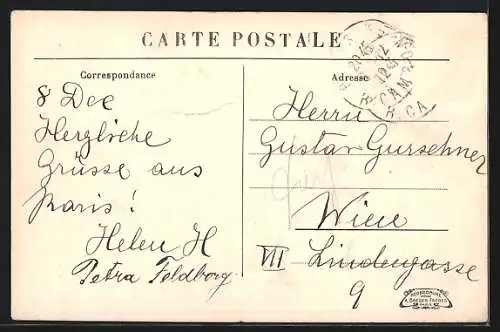 CARTE POSTALE
Correspondance
Adresse
8 Dec
Herzliche
Grüsse aus
Paris!
Helen H
Petra Feldborg
Herrn
Gustav Gurschner
Wien
VII Lindengasse
9